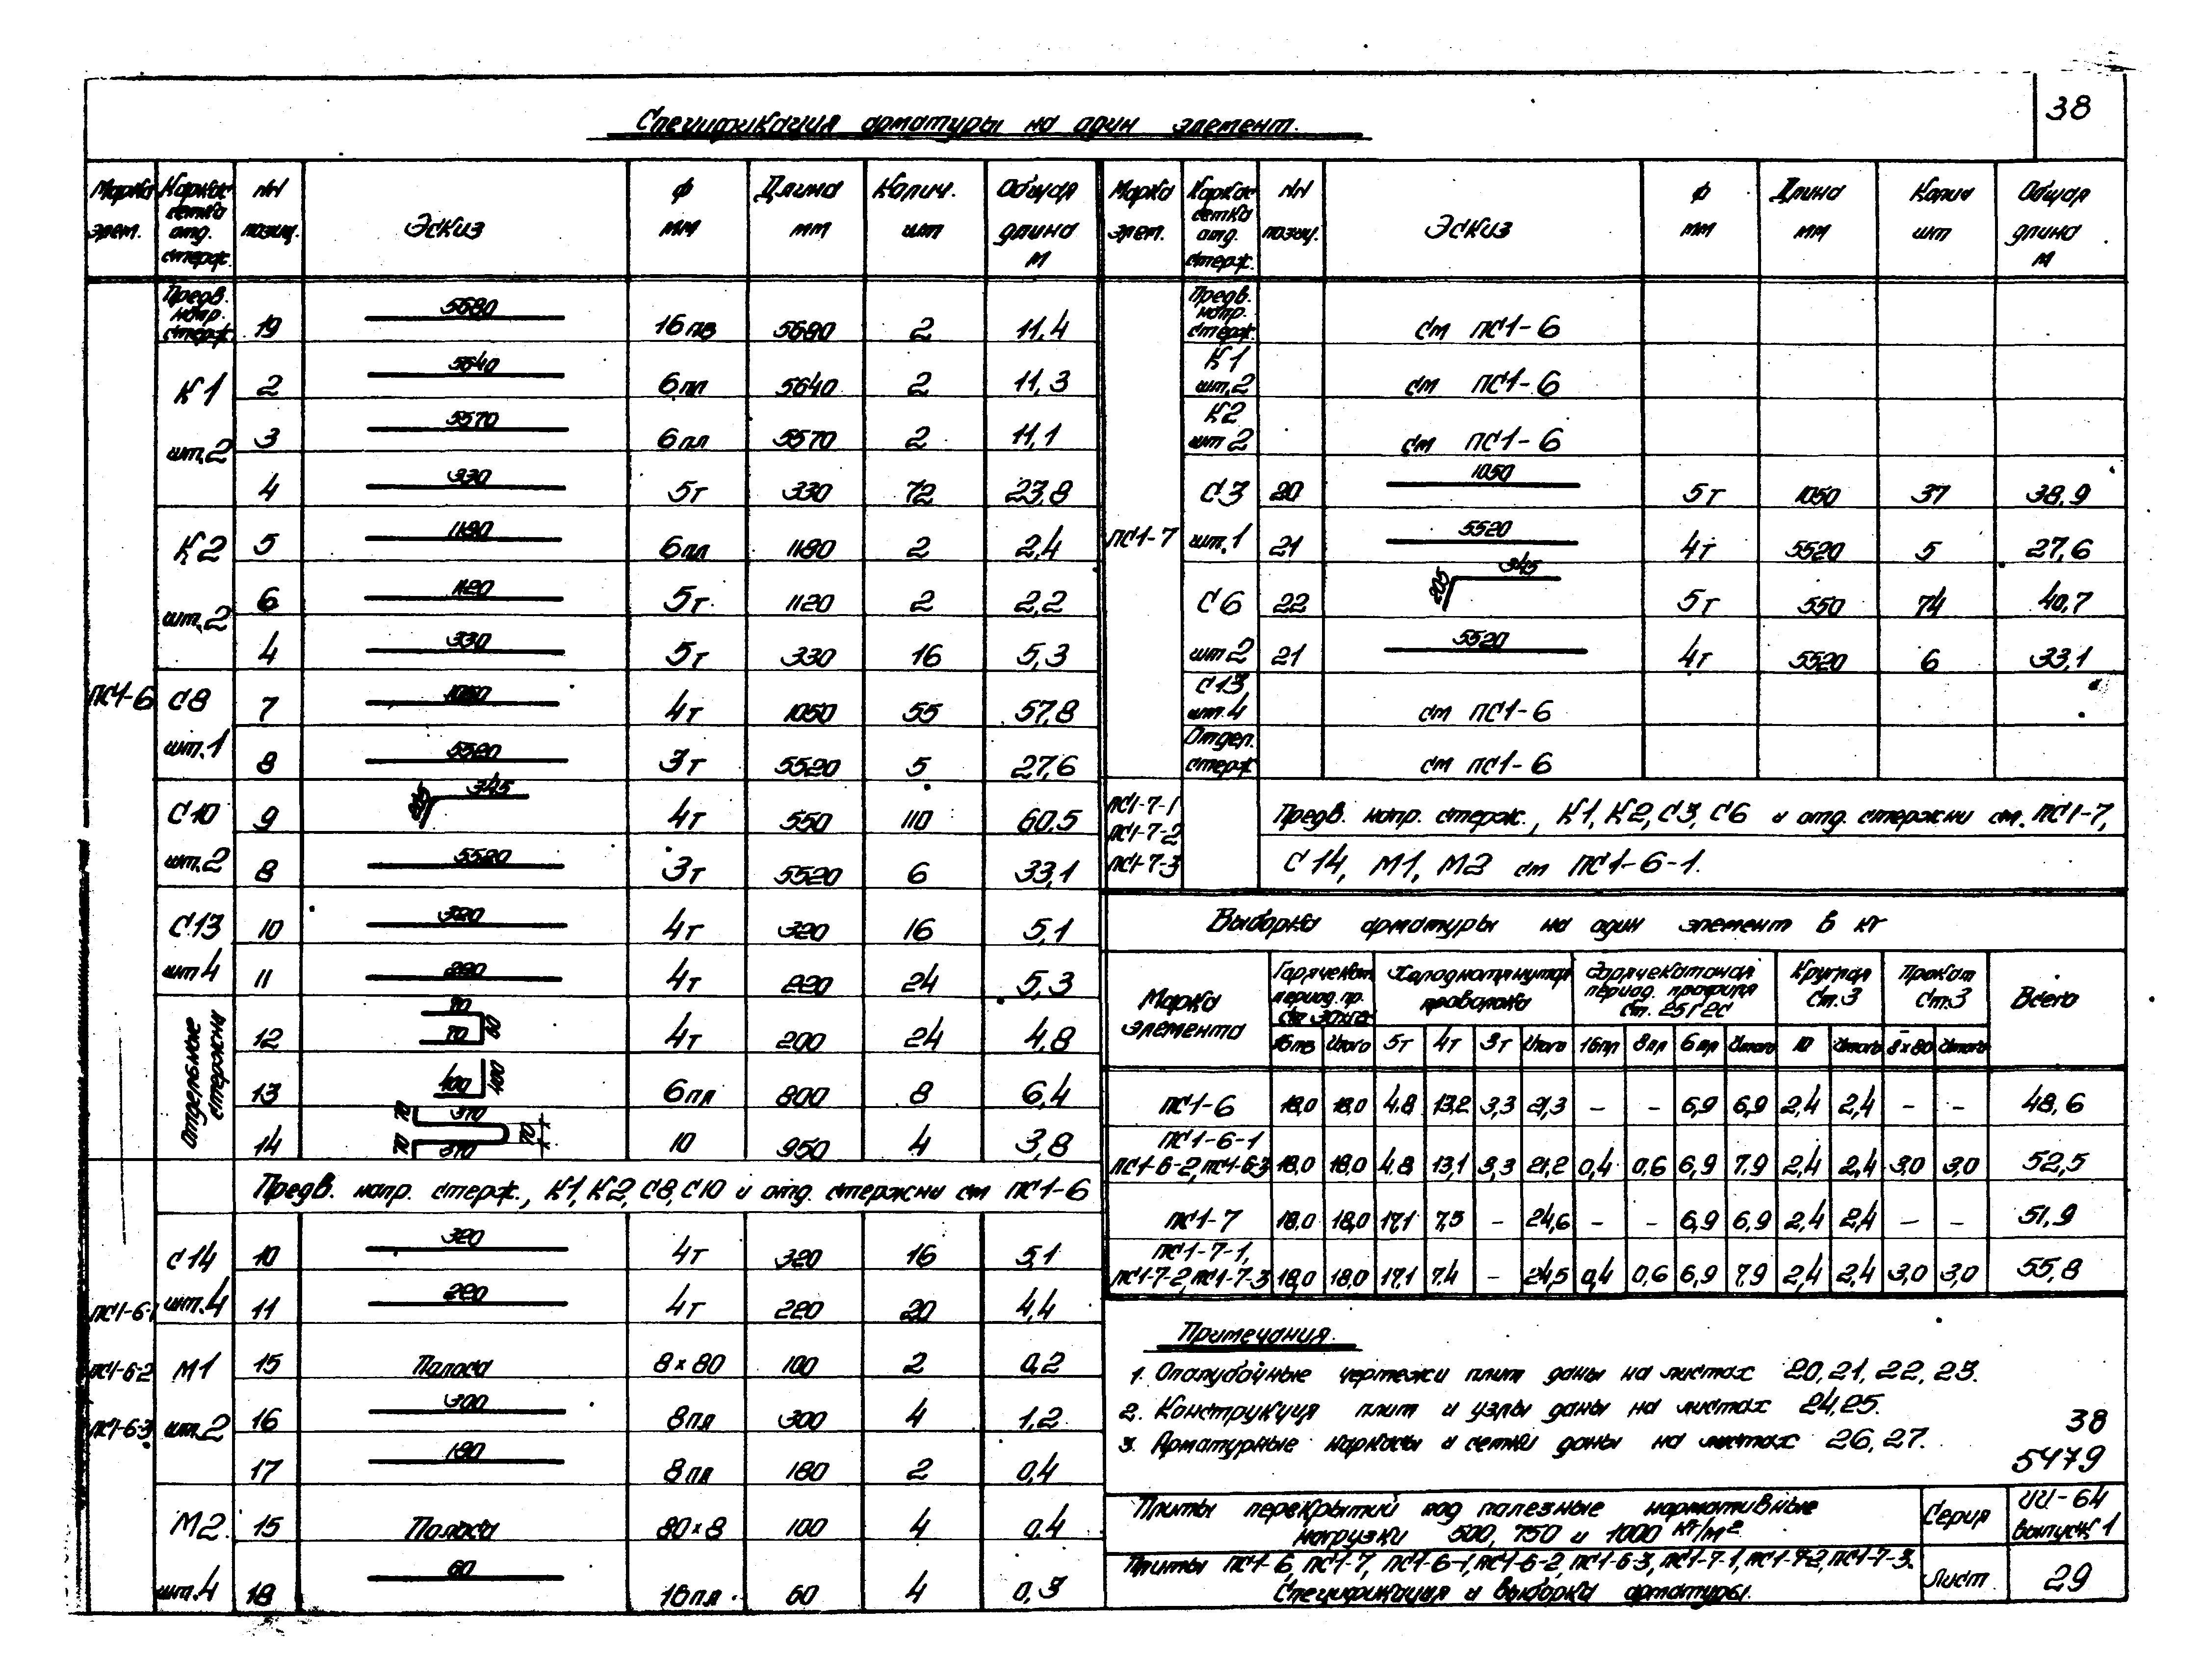 38
Спецификация арматуры на один элемент.
Марка элем. | Каркас сетка отд. стерж. | NN позиц. | Эскиз | ф мм | Длина мм | Колич. шт | Общая длина м
ПС1-6
Предв. напр. стерж. | 19 | 5680 | 16пв | 5680 | 2 | 11,4
К1 шт.2 | 2 | 5640 | 6пл | 5640 | 2 | 11,3
3 | 5570 | 6пл | 5570 | 2 | 11,1
4 | 330 | 5т | 330 | 72 | 23,8
К2 шт.2 | 5 | 1180 | 6пл | 1180 | 2 | 2,4
6 | 1120 | 5т | 1120 | 2 | 2,2
4 | 330 | 5т | 330 | 16 | 5,3
С8 шт.1 | 7 | 1050 | 4т | 1050 | 55 | 57,8
8 | 5520 | 3т | 5520 | 5 | 27,6
С10 шт.2 | 9 | 205 345 | 4т | 550 | 110 | 60,5
8 | 5520 | 3т | 5520 | 6 | 33,1
С13 шт4 | 10 | 320 | 4т | 320 | 16 | 5,1
11 | 220 | 4т | 220 | 24 | 5,3
Отдельные стержни | 12 | 70 70 60 | 4т | 200 | 24 | 4,8
13 | 400 400 | 6пл | 800 | 8 | 6,4
14 | 70 370 70 370 70 | 10 | 950 | 4 | 3,8
Предв. напр. стерж., К1, К2, С8, С10 и отд. стержни см ПС1-6
ПС1-6-1
ПС1-6-2
ПС1-6-3
С14 шт.4 | 10 | 320 | 4т | 320 | 16 | 5,1
11 | 220 | 4т | 220 | 20 | 4,4
М1 шт.2 | 15 | Полоса | 8×80 | 100 | 2 | 0,2
16 | 300 | 8пл | 300 | 4 | 1,2
17 | 180 | 8пл | 180 | 2 | 0,4
М2 шт.4 | 15 | Полоса | 80×8 | 100 | 4 | 0,4
18 | 60 | 16пл | 60 | 4 | 0,3
Марка элем. | Каркас сетка отд. стерж. | NN позиц. | Эскиз | ф мм | Длина мм | Колич шт | Общая длина м
ПС1-7
Предв. напр. стерж. | см ПС1-6
К1 шт.2 | см ПС1-6
К2 шт2 | см ПС1-6
С3 шт.1 | 20 | 1050 | 5т | 1050 | 37 | 38,9
21 | 5520 | 4т | 5520 | 5 | 27,6
С6 шт2 | 22 | 205 345 | 5т | 550 | 74 | 40,7
21 | 5520 | 4т | 5520 | 6 | 33,1
С13 шт.4 | см ПС1-6
Отдел. стерж | см ПС1-6
ПС1-7-1
ПС1-7-2
ПС1-7-3
Предв. напр. стерж., К1, К2, С3, С6 и отд. стержни см. ПС1-7,
С14, М1, М2 см ПС1-6-1.
Выборка арматуры на один элемент в кг
Марка элемента | Горячекат. период. пр. Ст 30ХГ2С | Холоднотянутая проволока | Горячекатаная период. профиля Ст. 25Г2С | Круглая Ст.3 | Прокат Ст.3 | Всего
16пв | Итого | 5т | 4т | 3т | Итого | 16пл | 8пл | 6пл | Итого | 10 | Итого | 8×80 | Итого
ПС1-6 | 18,0 | 18,0 | 4,8 | 13,2 | 3,3 | 21,3 | - | - | 6,9 | 6,9 | 2,4 | 2,4 | - | - | 48,6
ПС1-6-1
ПС1-6-2, ПС1-6-3 | 18,0 | 18,0 | 4,8 | 13,1 | 3,3 | 21,2 | 0,4 | 0,6 | 6,9 | 7,9 | 2,4 | 2,4 | 3,0 | 3,0 | 52,5
ПС1-7 | 18,0 | 18,0 | 17,1 | 7,5 | - | 24,6 | - | - | 6,9 | 6,9 | 2,4 | 2,4 | - | - | 51,9
ПС1-7-1,
ПС1-7-2, ПС1-7-3 | 18,0 | 18,0 | 17,1 | 7,4 | - | 24,5 | 0,4 | 0,6 | 6,9 | 7,9 | 2,4 | 2,4 | 3,0 | 3,0 | 55,8
Примечания.
1. Опалубочные чертежи плит даны на листах 20, 21, 22, 23.
2. Конструкция плит и узлы даны на листах 24, 25.
3. Арматурные каркасы и сетки даны на листах 26, 27.
38
5479
Плиты перекрытий под полезные нормативные
нагрузки 500, 750 и 1000 кг/м²
Серия
ИИ-64
выпуск 1
Плиты ПС1-6, ПС1-7, ПС1-6-1, ПС1-6-2, ПС1-6-3, ПС1-7-1, ПС1-7-2, ПС1-7-3.
Спецификация и выборка арматуры.
Лист
29